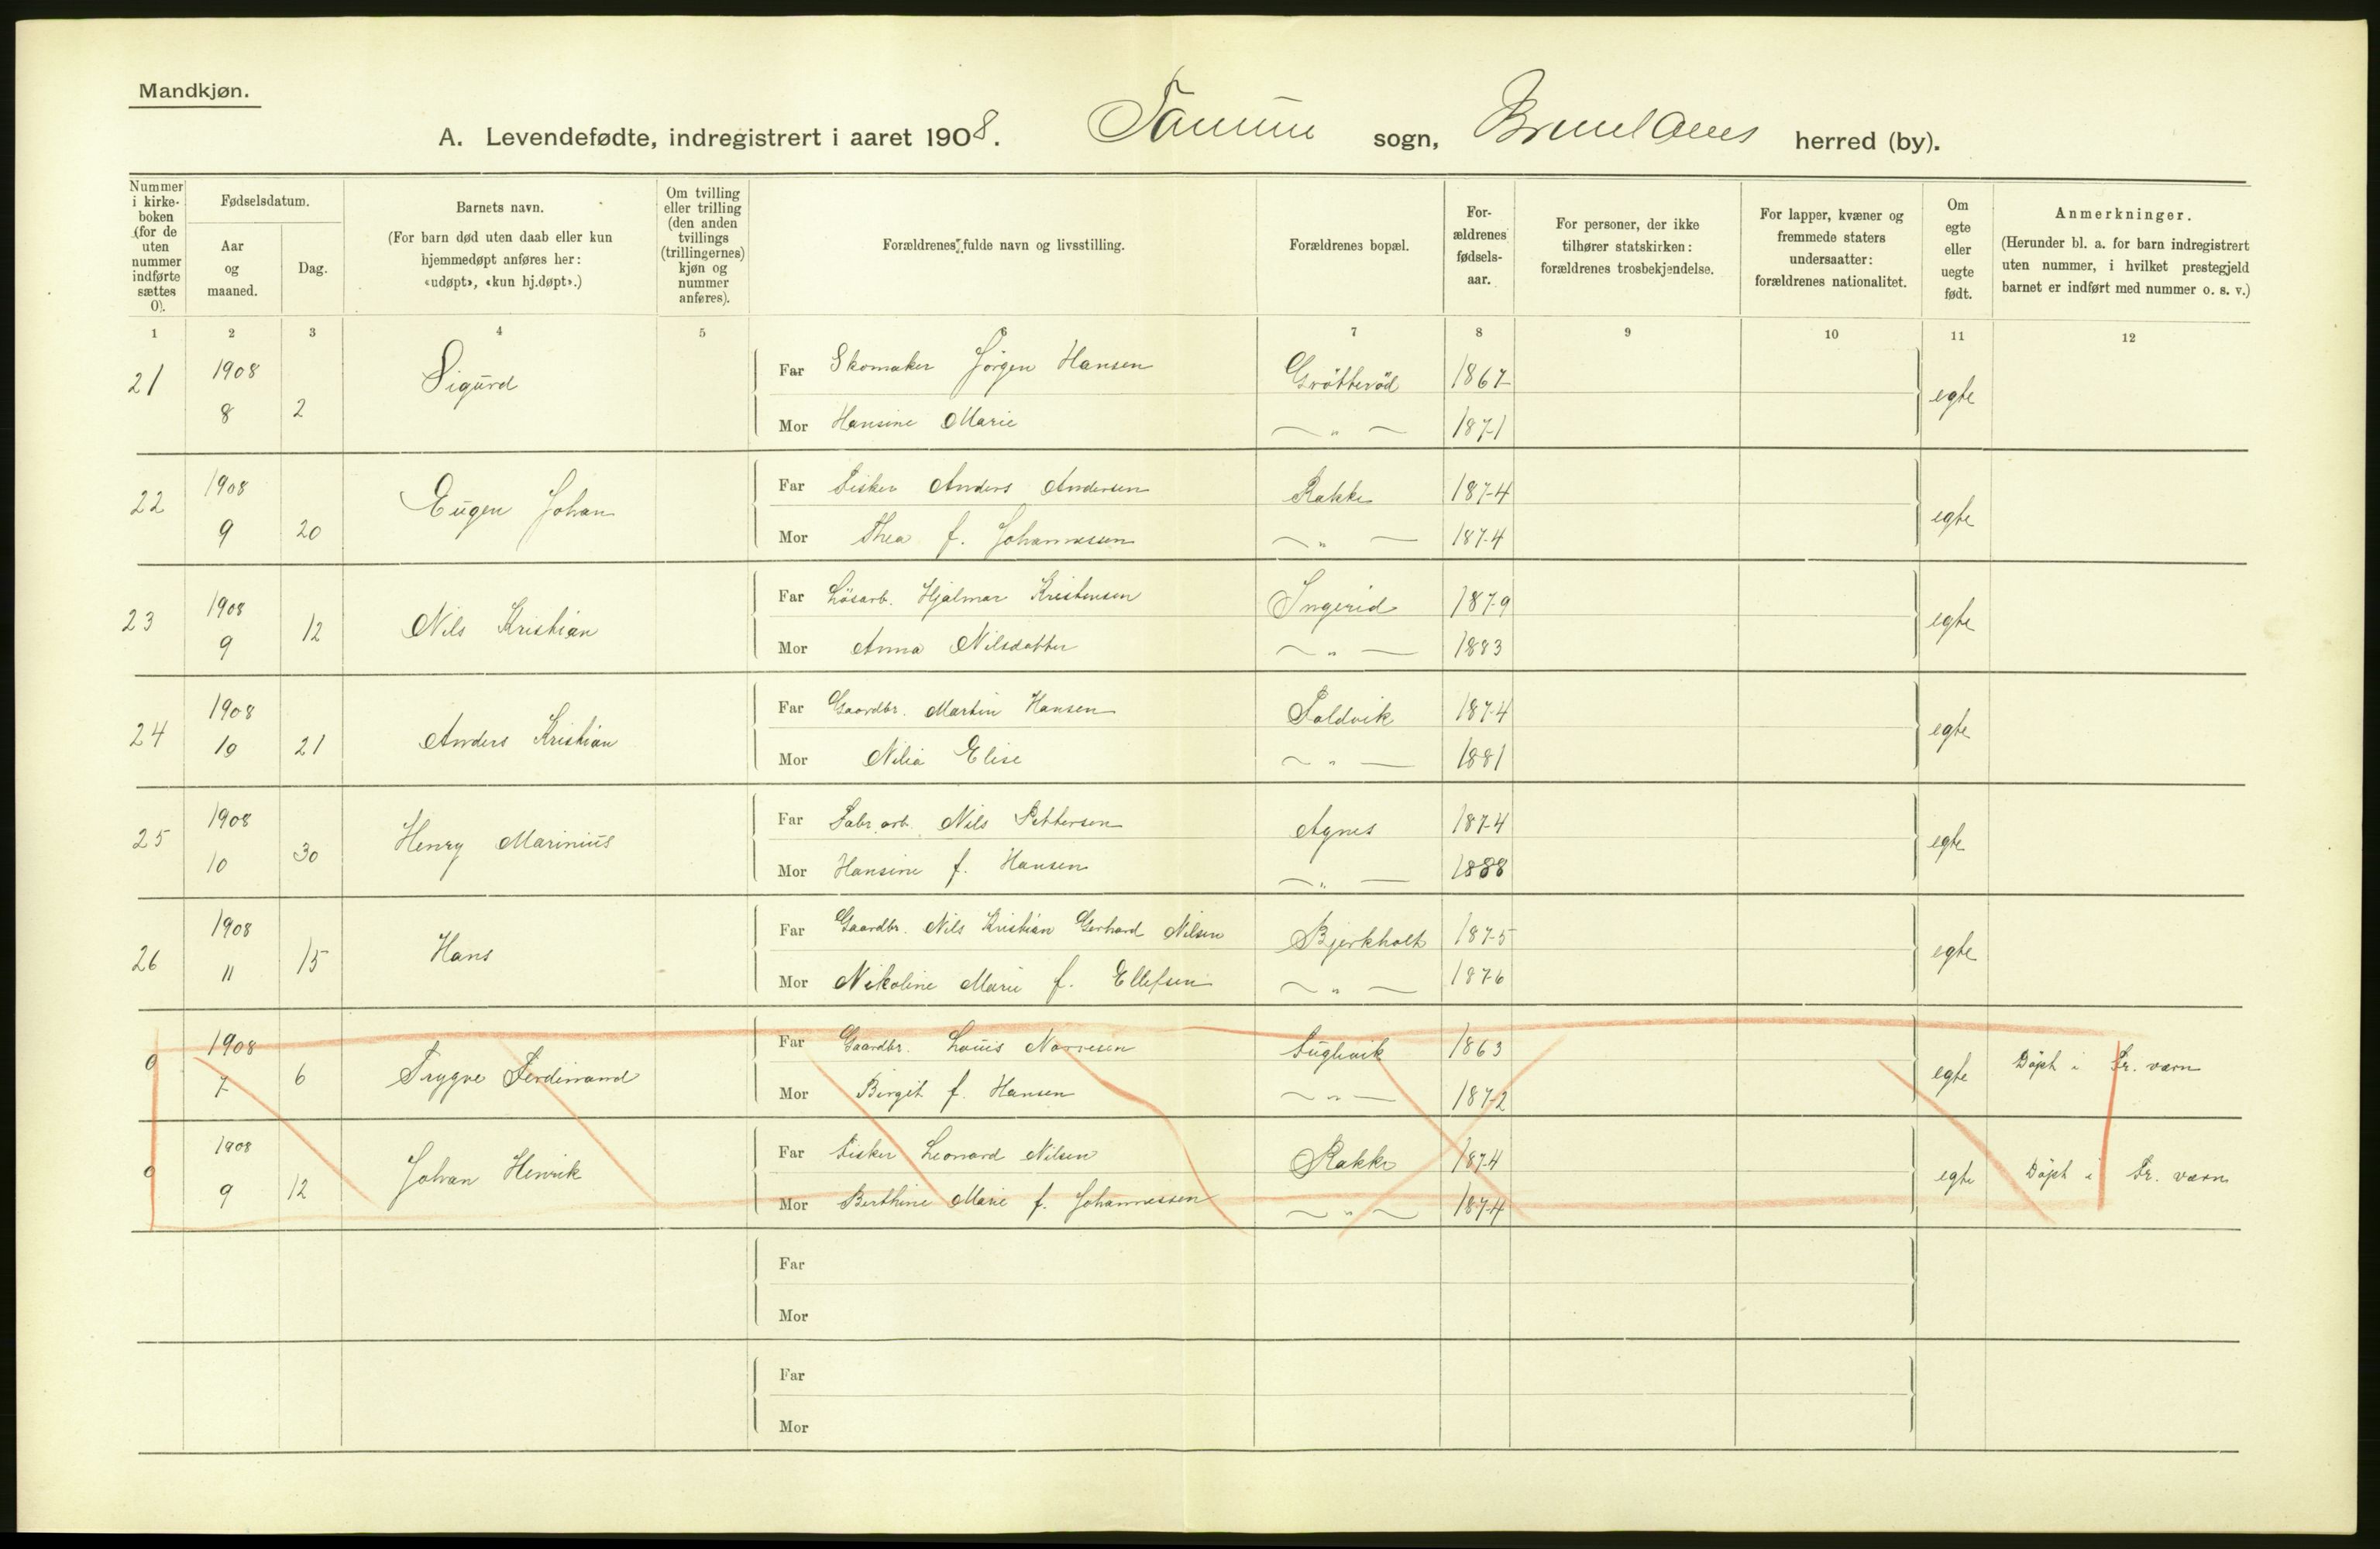 Mandkjøn.
A. Levendefødte, indregistrert i aaret 1908. Tanum sogn, Brunlanes herred (by).
Nummer i kirke-boken (for de uten nummer indførte sættes 0).
Fødselsdatum.
Aar og maaned.
Dag.
Barnets navn.
(For barn død uten daab eller kun hjemmedøpt anføres her: «udøpt», «kun hj.døpt».)
Om tvilling eller trilling (den anden tvillings (trillingernes) kjøn og nummer anføres).
Forældrenes fulde navn og livsstilling.
Forældrenes bopæl.
For-ældrenes fødsels-aar.
For personer, der ikke tilhører statskirken: forældrenes trosbekjendelse.
For lapper, kvæner og fremmede staters undersaatter: forældrenes nationalitet.
Om egte eller uegte født.
Anmerkninger.
(Herunder bl. a. for barn indregistrert uten nummer, i hvilket prestegjeld barnet er indført med nummer o. s. v.)
1 2 3 4 5 6 7 8 9 10 11 12
21 1908 8 2 Sigurd egte
Far Skomaker Jörgen Hansen Grötteröd 1867
Mor Hansine Marie — " — 1871
22 1908 9 20 Eugen Johan egte
Far Fisker Anders Andersen Rakke 1874
Mor Thea f. Johannessen — " — 1874
23 1908 9 12 Nils Kristian egte
Far Lösarb. Hjalmar Kristensen Ingerid 1879
Mor Anna Nilsdatter — " — 1883
24 1908 10 21 Anders Kristian egte
Far Gaardbr. Martin Hansen Foldvik 1874
Mor Nilia Elise — " — 1881
25 1908 10 30 Henry Marinius egte
Far Fabr.arb. Nils Pettersen Agnes 1874
Mor Hansine f. Hansen — " — 1888
26 1908 11 15 Hans egte
Far Gaardbr. Nils Kristian Gerhard Nilsen Bjerkholt 1875
Mor Nikoline Marie f. Ellefsen — " — 1876
0 1908 7 6 Trygve Ferdinand egte Döpt i Fr. værn
Far Gaardbr. Louis Norvesen Fuglevik 1863
Mor Birgit f. Hansen — " — 1872
0 1908 9 12 Johan Henrik egte Döpt i Fr. værn
Far Fisker Leonard Nilsen Rakke 1874
Mor Berthine Marie f. Johannessen — " — 1874
Far
Mor
Far
Mor